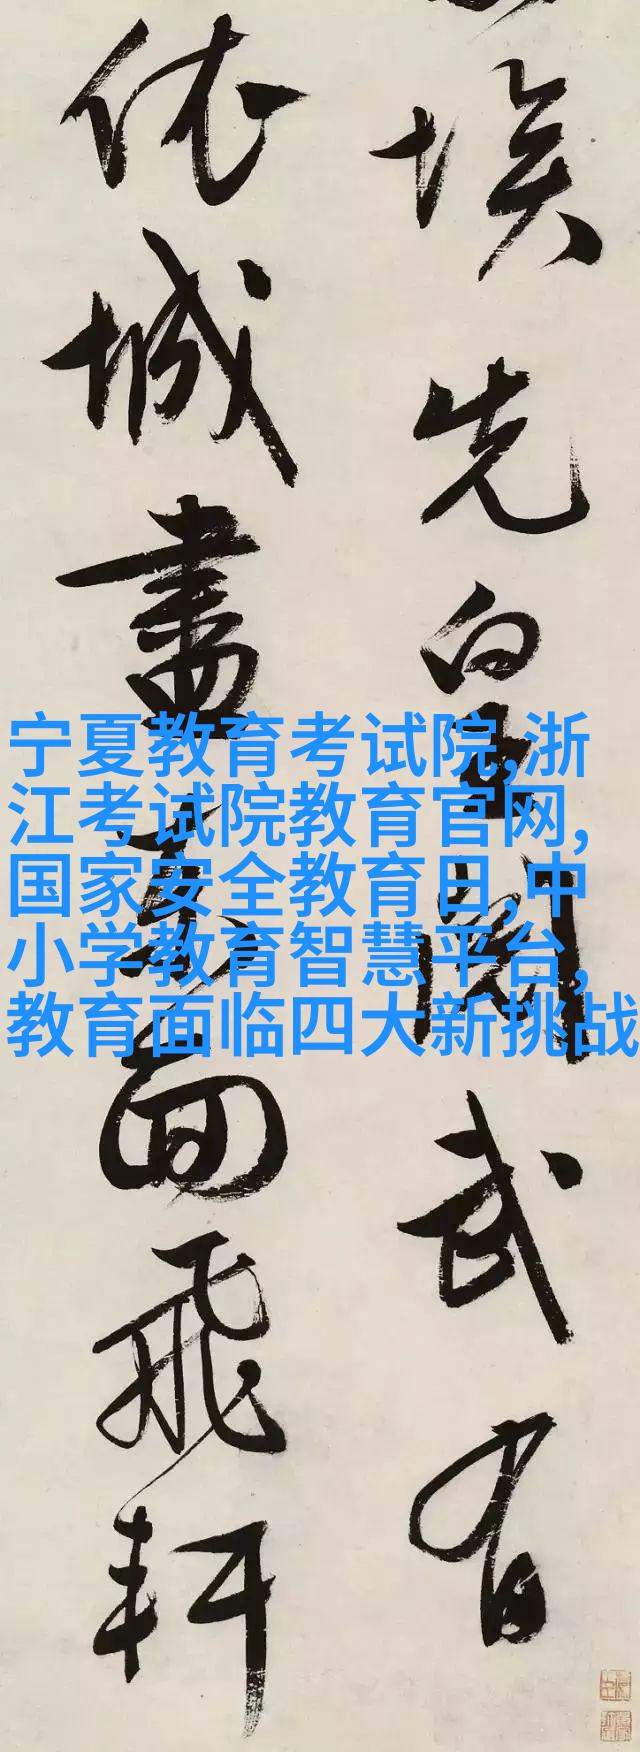 埃先皇閱武有
依城盡東面飛軒
宁夏教育考试院,浙
江考试院教育官网,
国家安全教育日,中
小学教育智慧平台,
教育面临四大新挑战